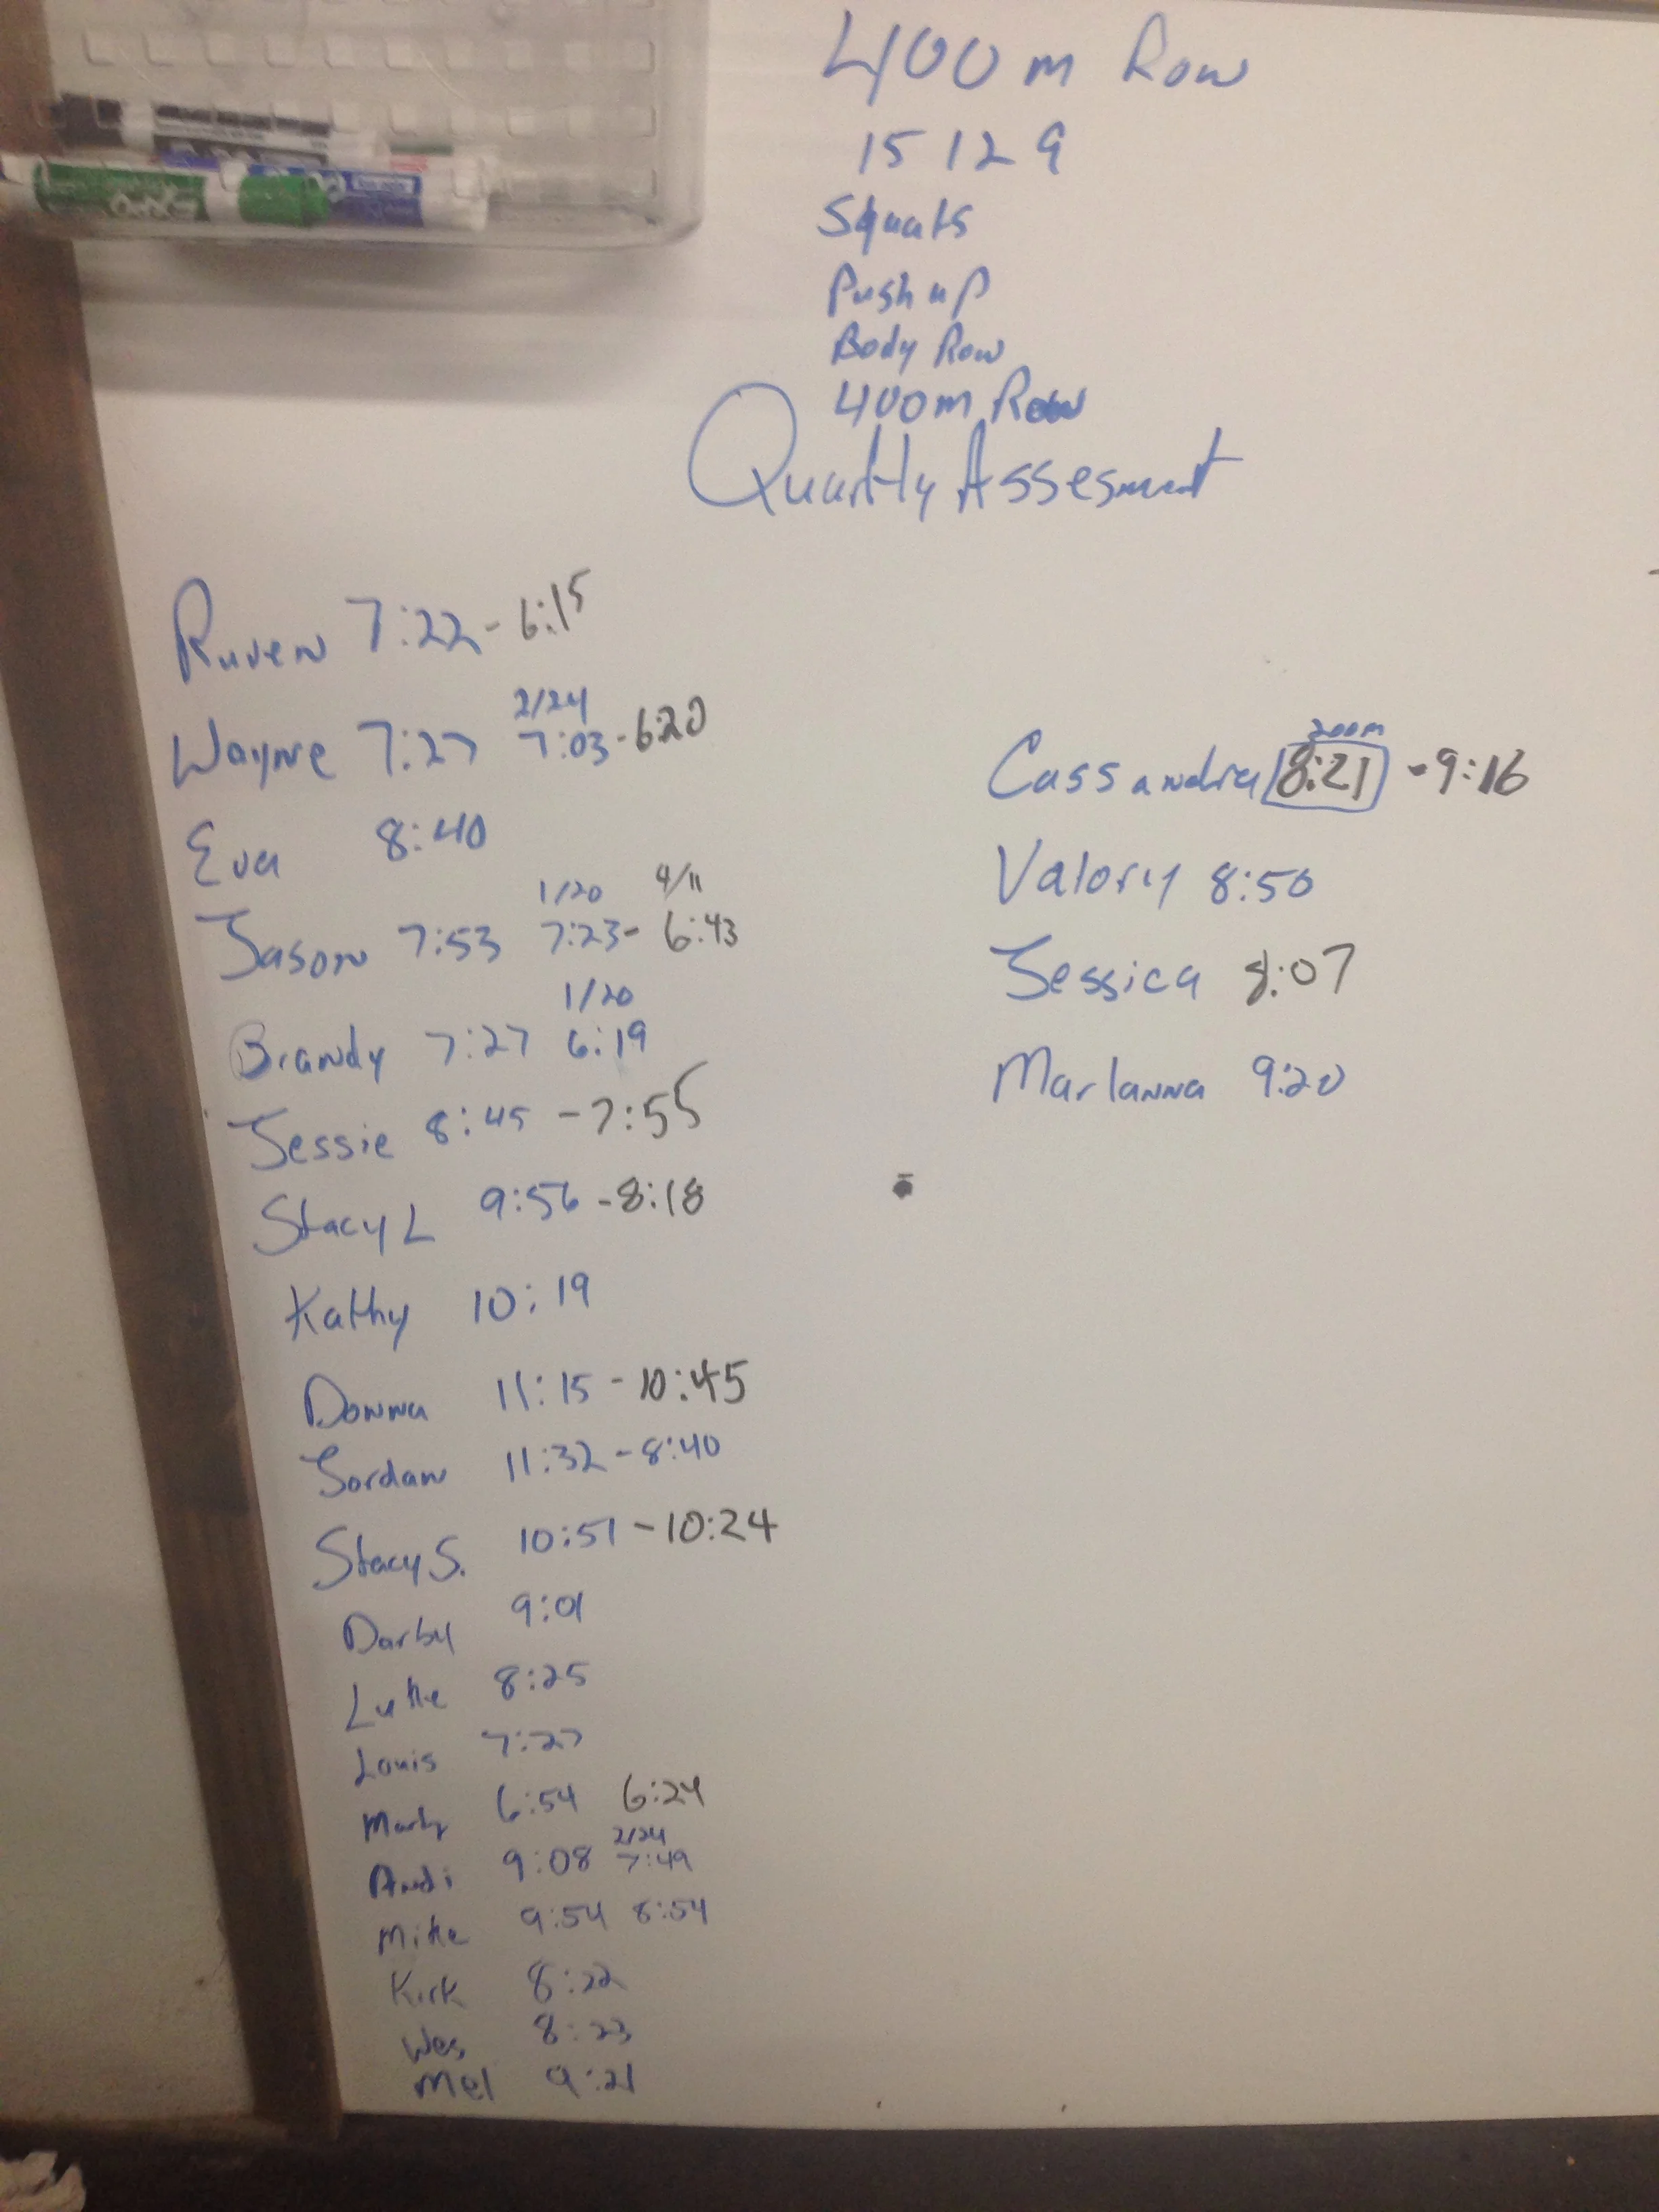 400m Row
15 12 9
Squats
Push up
Body Row
400m Row
Quartly Assesment
Ruven 7:22 - 6:15
2/24
Wayne 7:27 7:03 - 6:20
Eva 8:40
1/20 4/11
Jason 7:53 7:23 - 6:43
1/20
Brandy 7:27 6:19
Jessie 8:45 - 7:55
Stacy L 9:56 - 8:18
Kathy 10:19
Donna 11:15 - 10:45
Jordan 11:32 - 8:40
Stacy S. 10:51 - 10:24
Darby 9:01
Luke 8:25
Louis 7:27
Marty 6:54 6:24
2/24
Andi 9:08 7:49
Mike 9:54 8:54
Kirk 8:22
Wes 8:23
Mel 9:21
200m
Cassandra 8:21 - 9:16
Valory 8:50
Jessica 8:07
Marlanna 9:20
EXPO